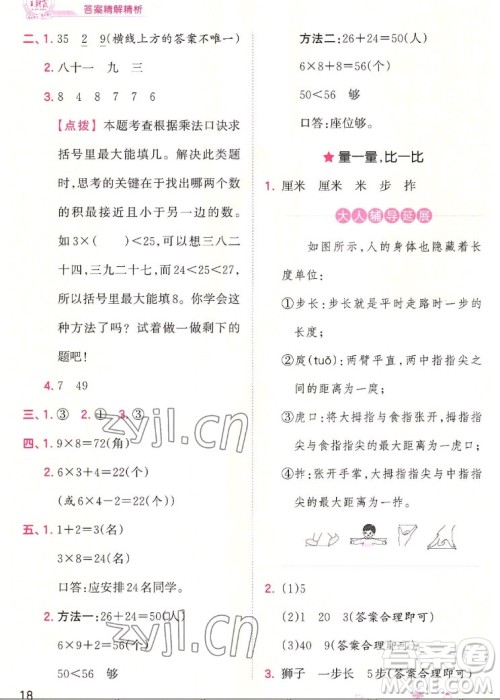 答案精解精析
二、1. 35 2 9(横线上方的答案不唯一)
2. 八十一 九 三
3. 8 4 8 7 7 6
【点拨】本题考查根据乘法口诀求
括号里最大能填几。解决此类题
时,思考的关键在于找出括号里
填几最接近且小于右边的数。例
如 3×( )<27,想:三八二
十四,三九二十七,而24<27,所
以括号里最大能填8。你学会了这
种方法了吗?试着做一做剩下的
题吧!
4. 7 49
三、1. ③ 2. ① 3. ③
四、1. 9×8=72(角)
2. 6×3+4=22(个)
(或6×4-2=22(个))
五、1. 1+2=3(名)
3×8=24(名)
口答:应安排24名同学。
2. 方法一:26+24=50(人)
6×9+2=56(个)
50<56 够
18
方法二:26+24=50(人)
6×8+8=56(个)
50<56 够
口答:座位够。
★量一量,比一比
1. 厘米 厘米 米 步 拃
大人辅导延展
如图所示,人的身体也隐藏着长
度单位:
①步长:步长就是平时走路时一步的
长度。
②庹(tuǒ):两臂平伸,两中指指尖之
间的距离为一庹。
③虎口:将大拇指与食指张开,大拇指
指尖与食指指尖的最大距离为一
虎口。
④拃:张开手掌,大拇指指尖与中指指
尖的最大距离为一拃。
2. (1)5
(2)1 20 3(答案合理即可)
(3)9 40(答案合理即可)
3. 狮子 一步长 5步(答案合理即可)
zyjl.cn
zyjl.cn